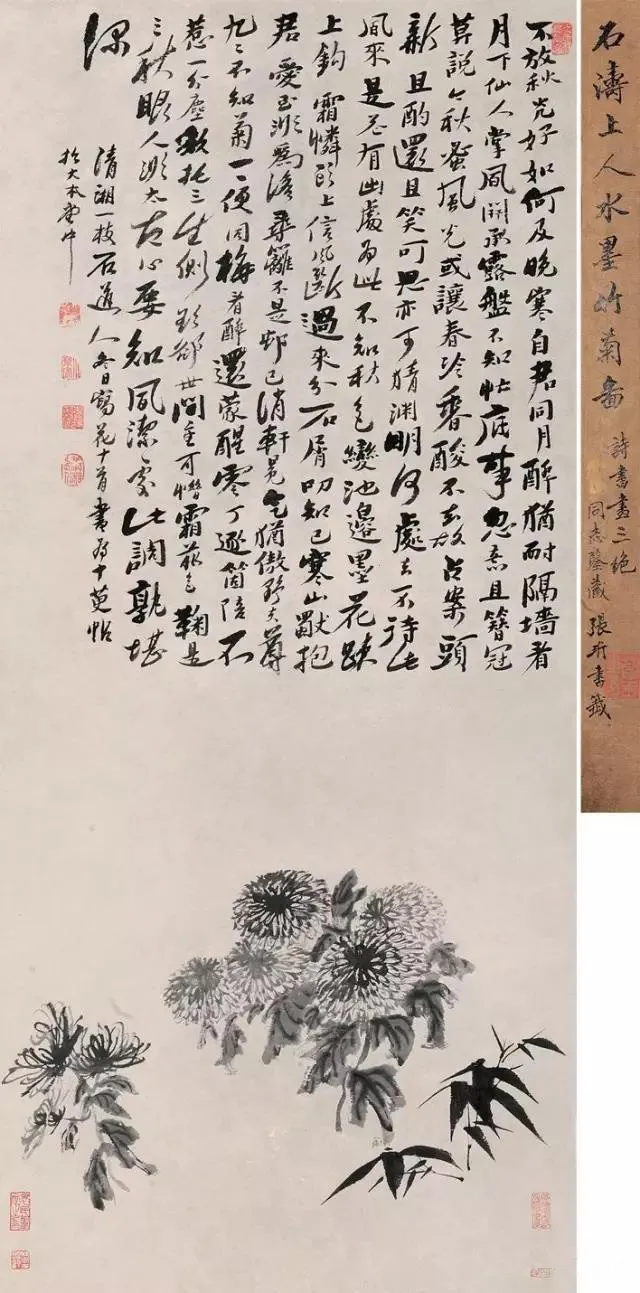 石濤上人水墨竹菊畫
詩書畫三絕
同志鑒藏 張珩書籤
不放秋光好如何及晚寒自君同月醉猶耐隔墻看
月下仙人掌風開承露盤不知忙底事忽焉且簪冠
莫說今秋蚤風光或讓春冷香酸不去故占案頭
新且酌還且笑可思亦可猜淵明何處去不待此
風來是花有幽處為此不知秋色變池邊墨花
上鈎霜憐頭上信風斷過來分石屑叨知已寒山獸抱
君愛玉為澹尋籬不是邨已消軒冕氣猶傲野夫尊
九之不知菊一一便同梅看醉還蒙醒零丁逐箇陪不
惹一分塵敢托三生側卻世間重可惜霜前色鞠是
三秋眼人太古心要知風潔處此調孰堪
深
清湘一枝石道人冬日寫花十首書為十英帖
於大本堂中